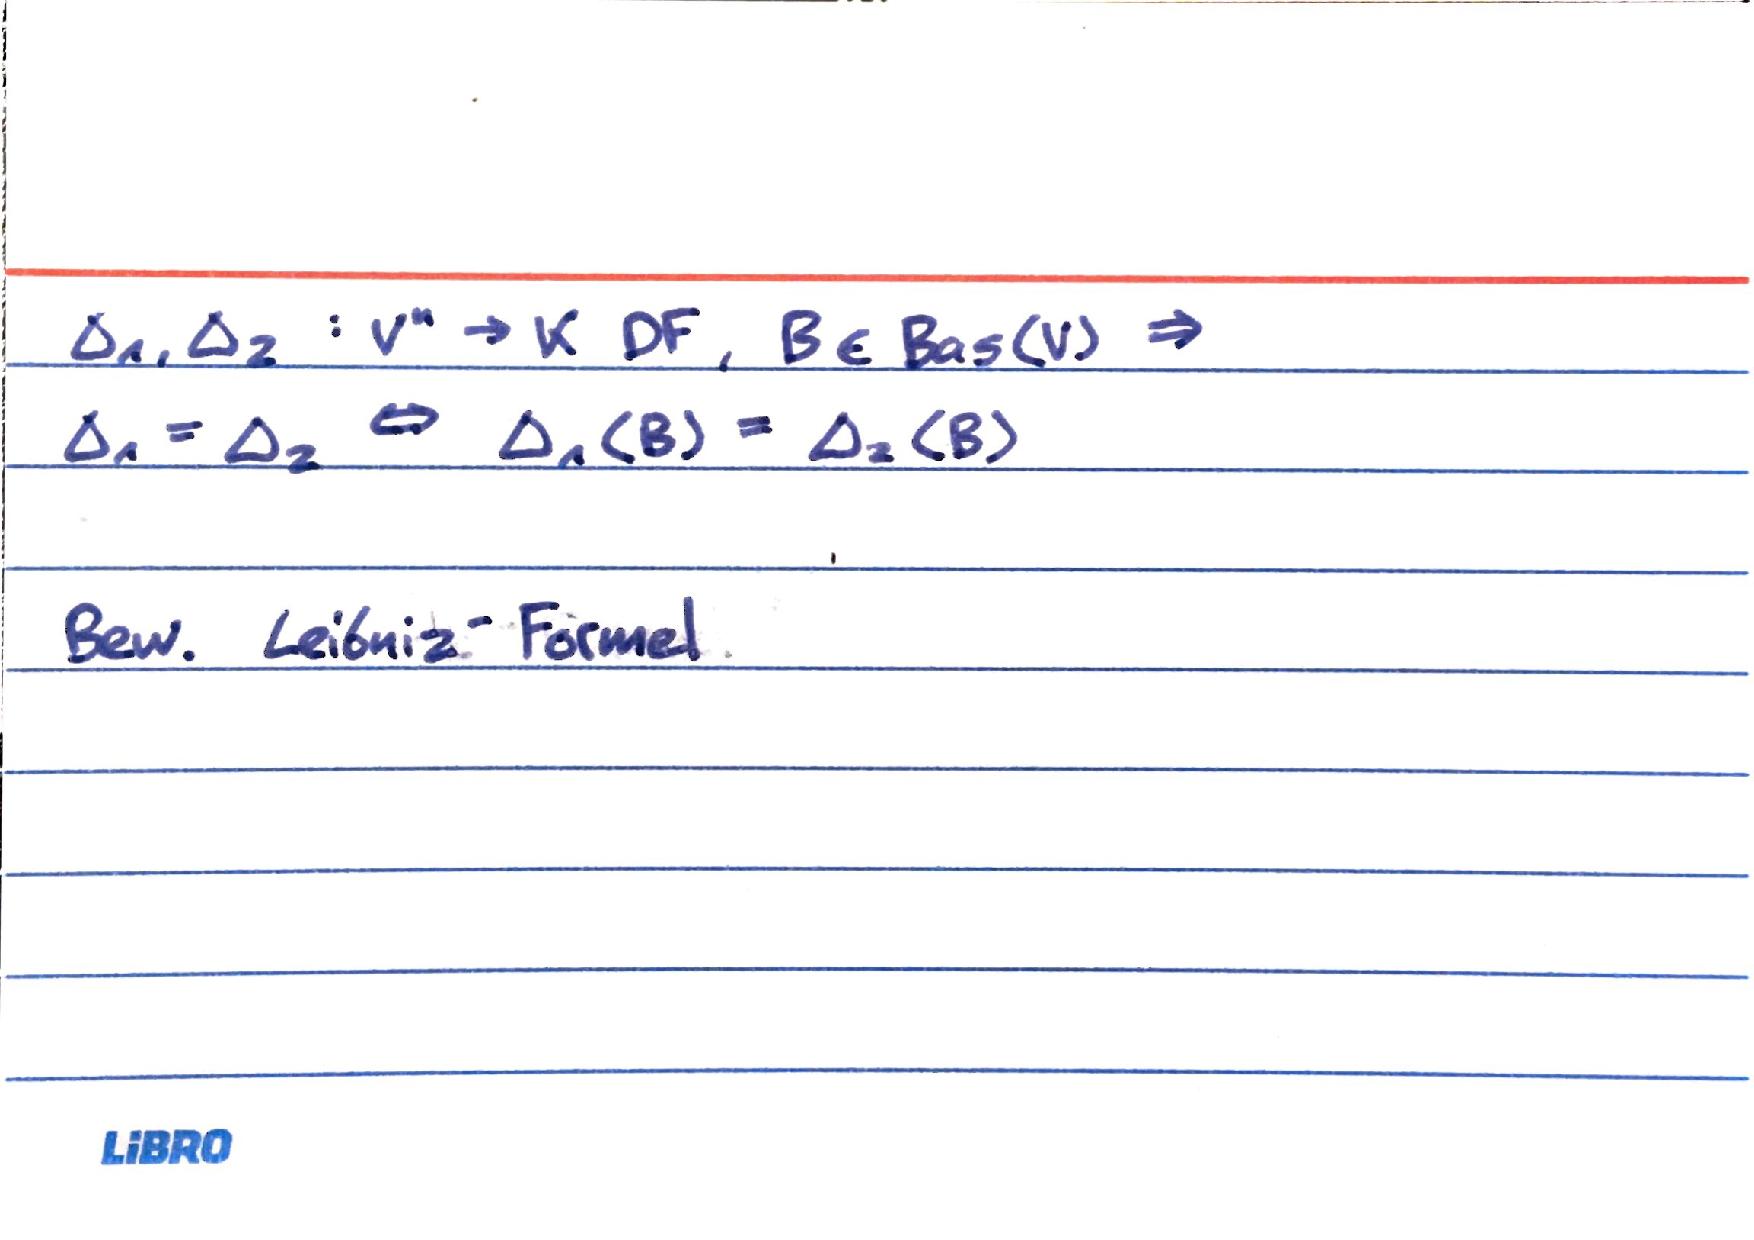 Δ₁, Δ₂ : Vⁿ → K DF, B ∈ Bas(V) ⇒
Δ₁ = Δ₂ ⇔ Δ₁(B) = Δ₂(B)
Bew. Leibniz-Formel
LiBRO